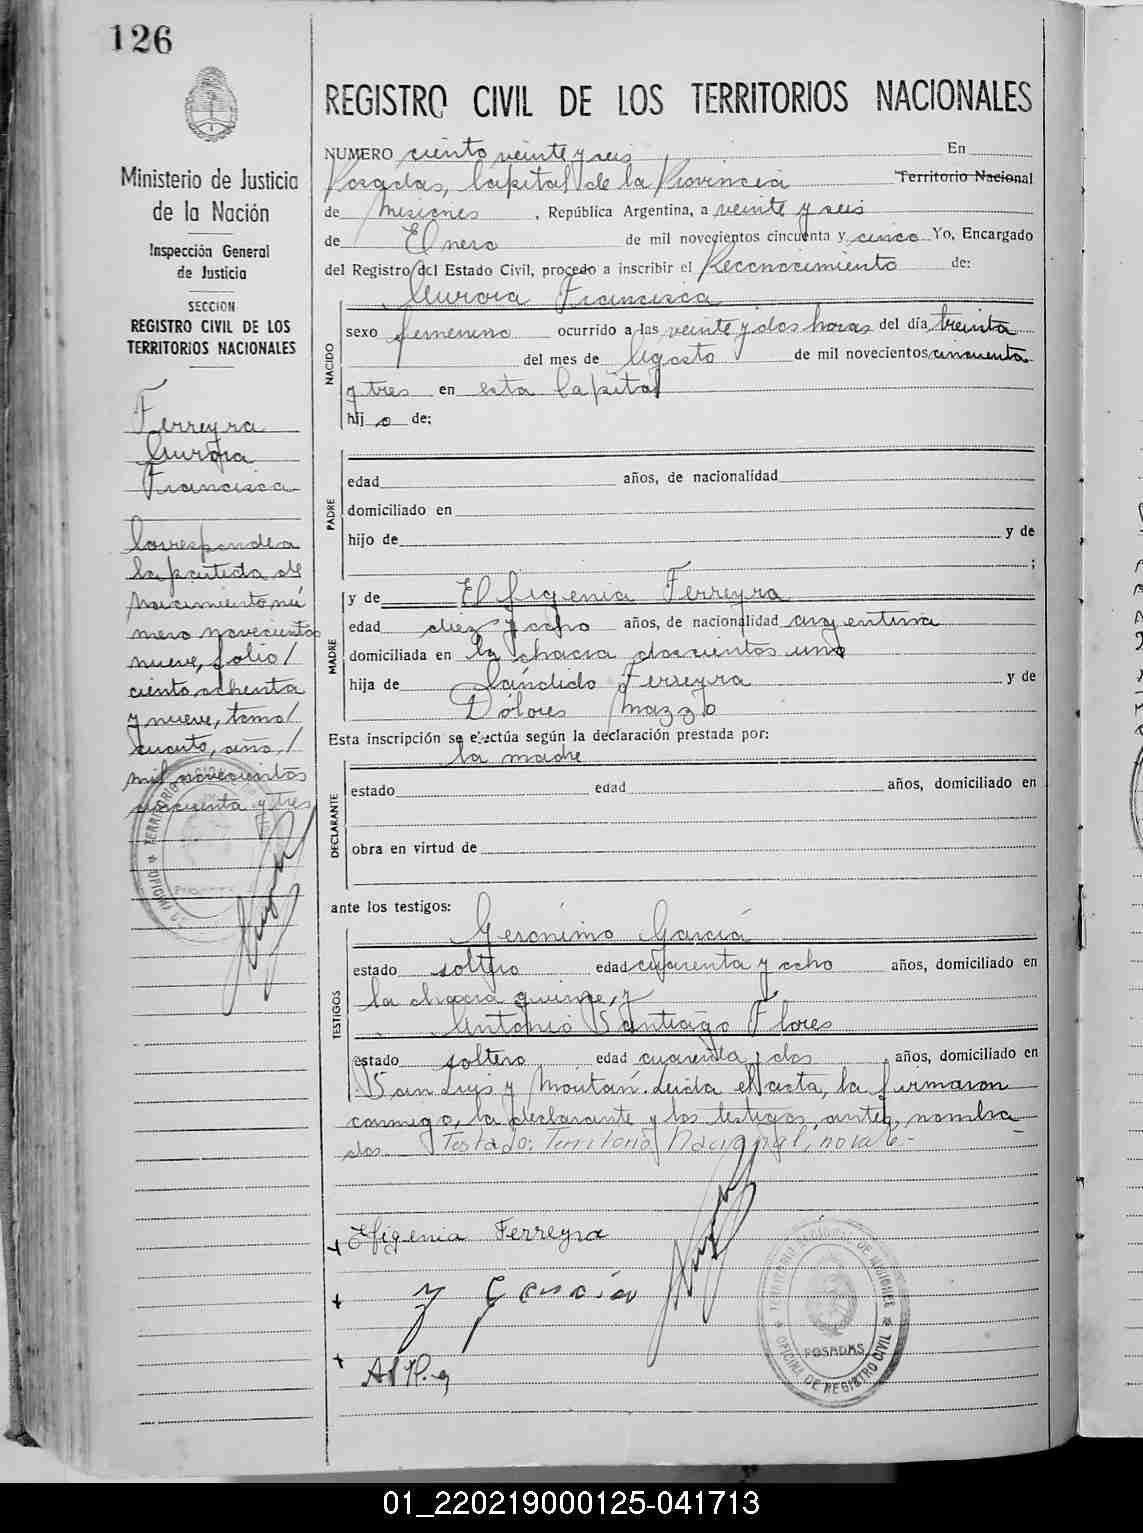 126
Ministerio de Justicia
de la Nación
Inspección General
de Justicia
SECCION
REGISTRO CIVIL DE LOS
TERRITORIOS NACIONALES
Ferreyra
Aurora
Francisca
Corresponde a
la partida de
nacimiento nú
mero novecientos
nueve, folio/
ciento ochenta
y nueve, tomo/
cuarto, año,/
mil novecientos
cincuenta y tres
REGISTRO CIVIL DE LOS TERRITORIOS NACIONALES
NUMERO ciento veinte y seis En
Posadas, Capital de la Provincia Territorio Nacional
de Misiones, República Argentina, a veinte y seis
de Enero de mil novecientos cincuenta y cinco Yo, Encargado
del Registro del Estado Civil, procedo a inscribir el Reconocimiento de:
Aurora Francisca
NACIDO
sexo femenino ocurrido a las veinte y dos horas del día treinta
del mes de Agosto de mil novecientos cincuenta
y tres en esta Capital
hij a de:
PADRE
edad años, de nacionalidad
domiciliado en
hijo de y de
;
MADRE
y de Efigenia Ferreyra
edad diez y ocho años, de nacionalidad argentina
domiciliada en la chacra doscientos uno
hija de Cándido Ferreyra y de
Dólores Mazzo
Esta inscripción se efectúa según la declaración prestada por:
la madre
DECLARANTE
estado edad años, domiciliado en
obra en virtud de
ante los testigos:
TESTIGOS
Gerónimo García
estado soltero edad cuarenta y ocho años, domiciliado en
la chacra quince, y
Antonio Santiago Flores
estado soltero edad cuarenta y dos, años, domiciliado en
San Luys y Moritán. Leida el acta, la firmaron
conmigo, la declarante y los testigos, antes, nombra
dos. Testado: Territorio Nacional, no vale.-
Efigenia Ferreyra
J García
TERRITORIO NACIONAL DE MISIONES
POSADAS
OFICINA DE REGISTRO CIVIL
01_220219000125-041713